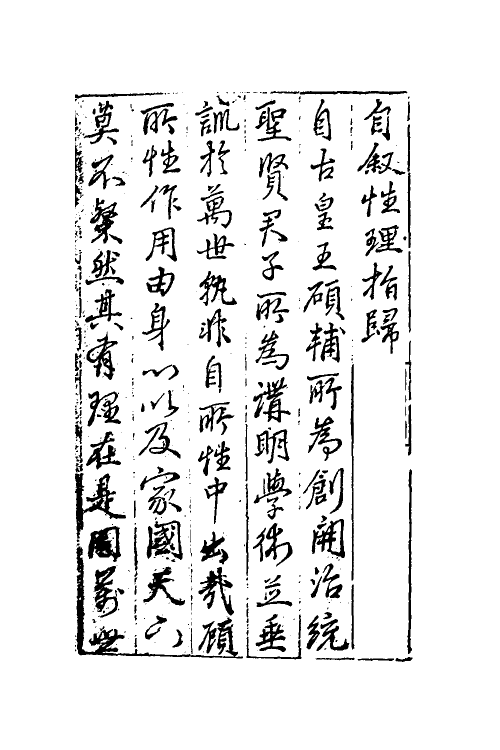 自叙性理指歸
自古皇王碩輔所為創開治統
聖賢君子所為講明學術並垂
訓於萬世孰非自所性中出哉顧
所性作用由身心以及家國天下
莫不粲然其有理在是固萬世